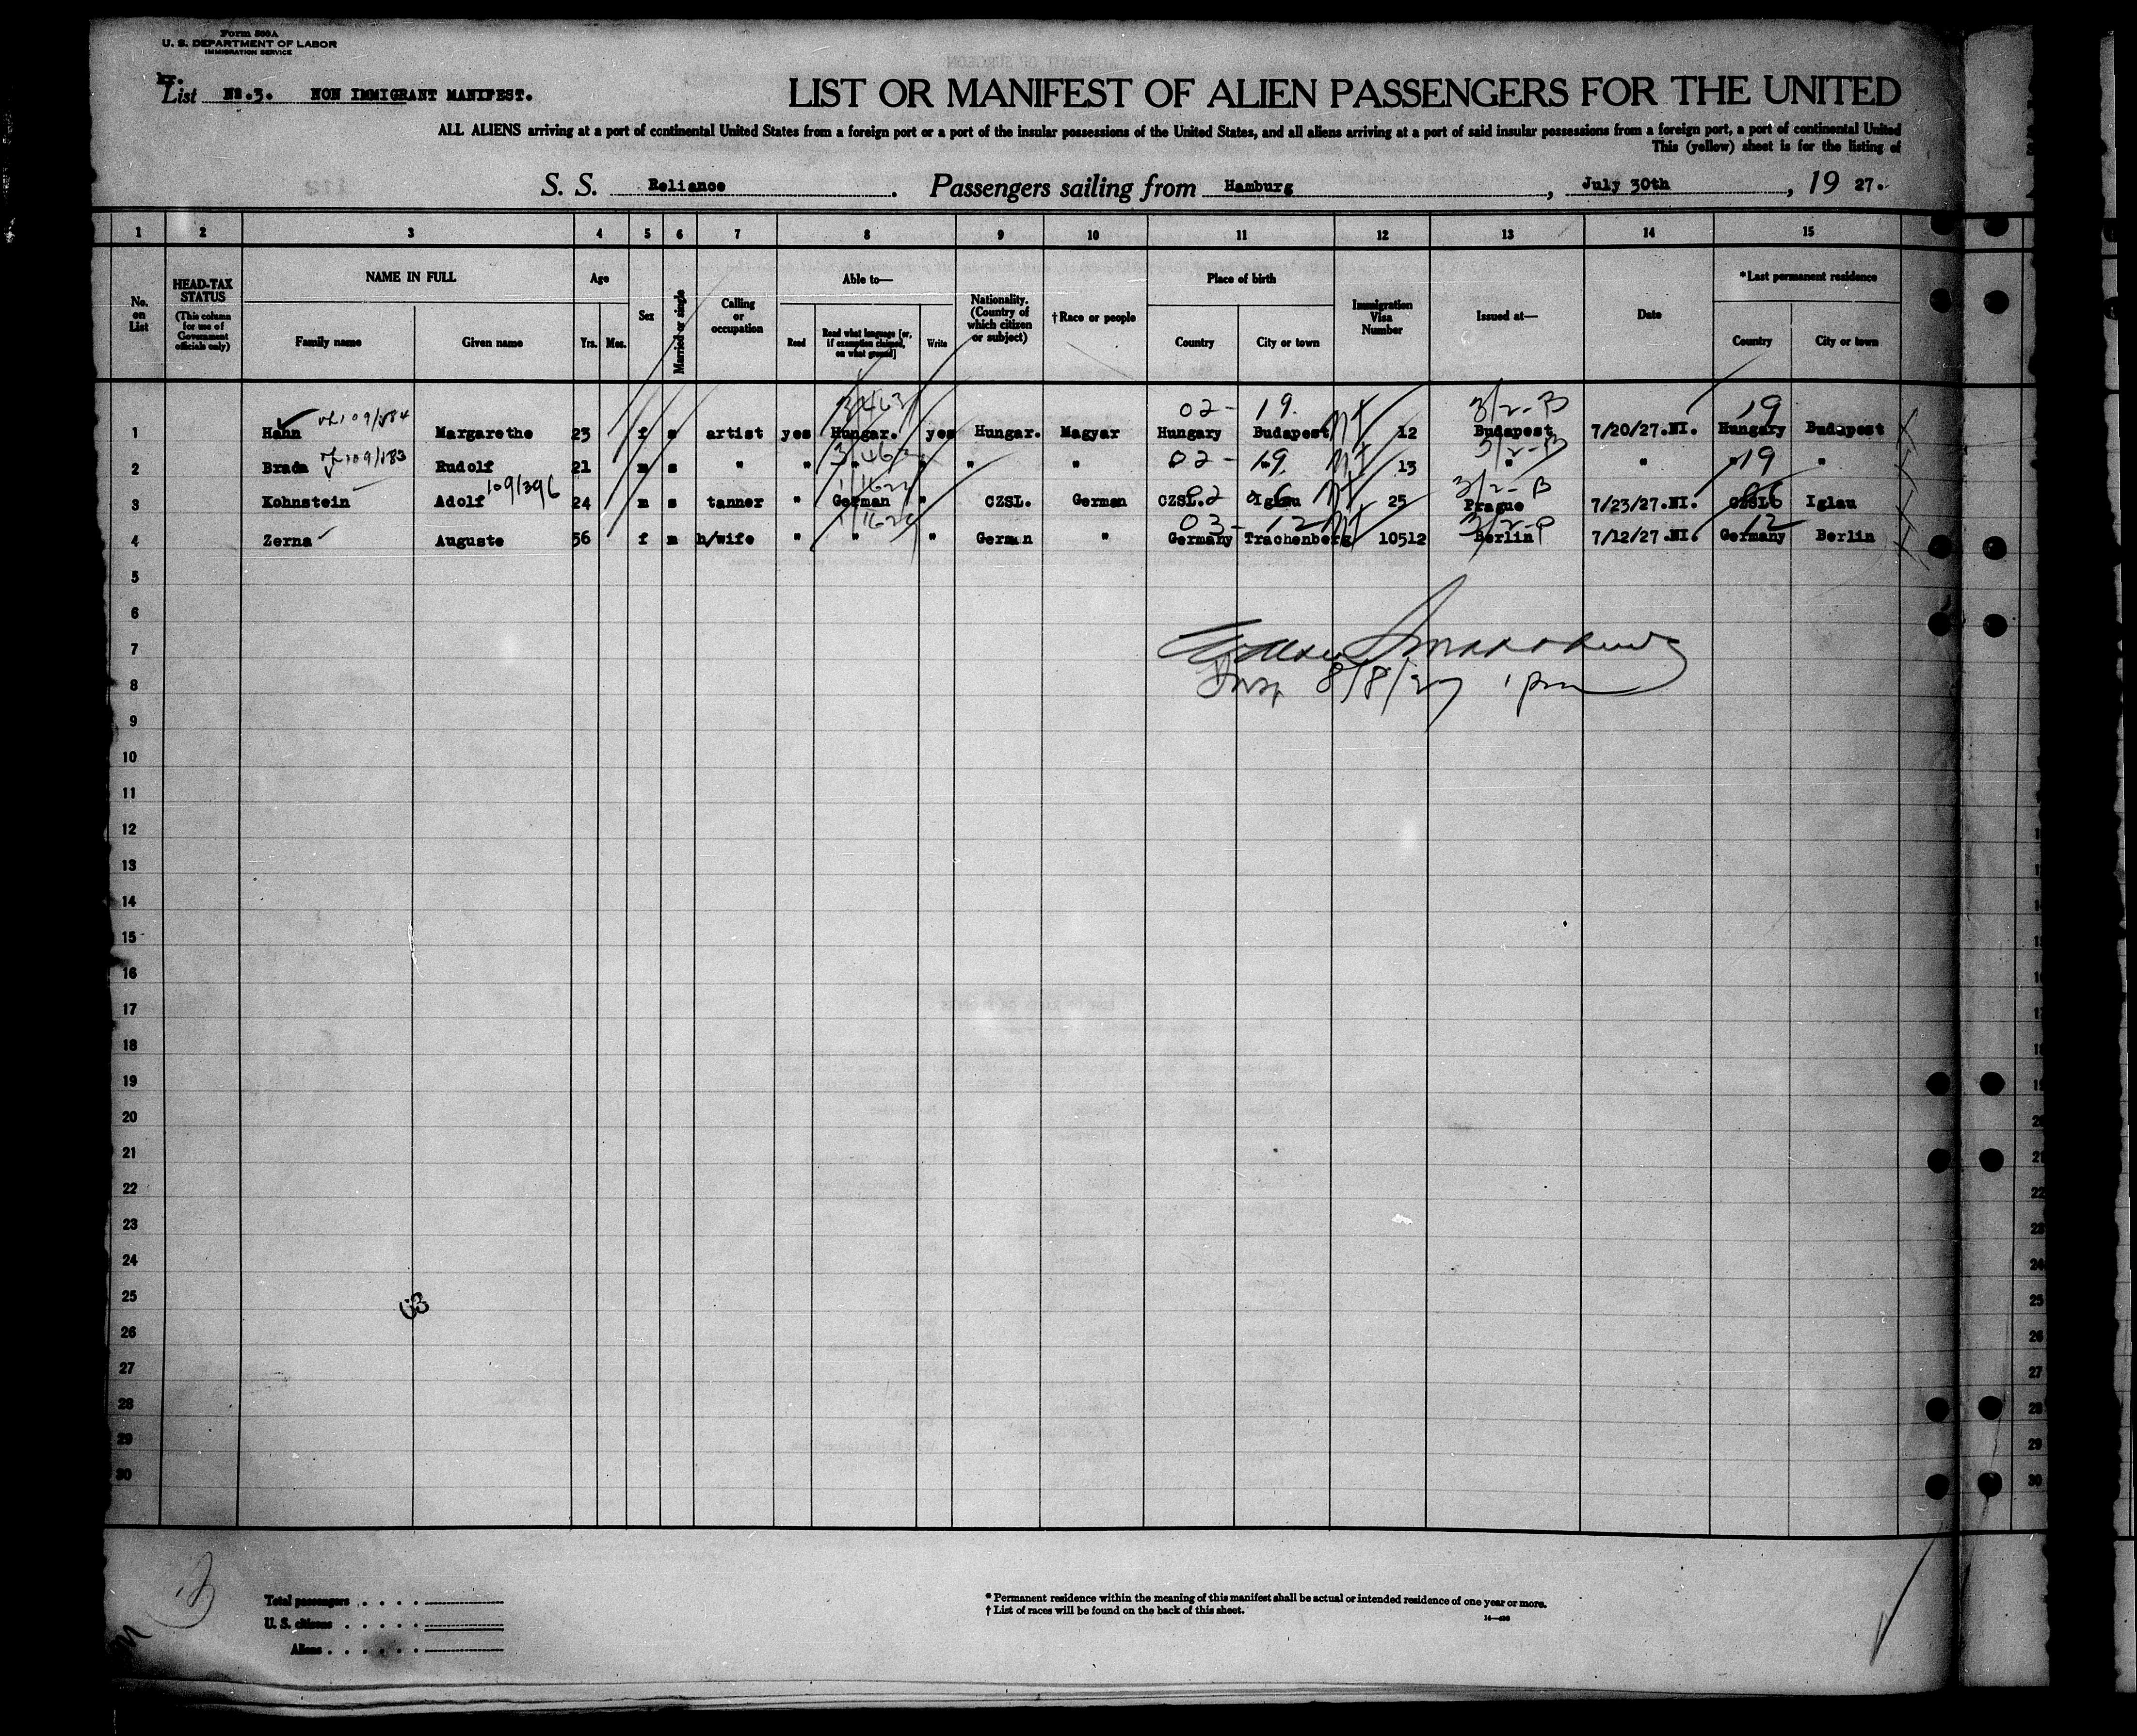 Form 500A
U. S. DEPARTMENT OF LABOR
IMMIGRATION SERVICE
List No.3. NON IMMIGRANT MANIFEST.
LIST OR MANIFEST OF ALIEN PASSENGERS FOR THE UNITED
ALL ALIENS arriving at a port of continental United States from a foreign port or a port of the insular possessions of the United States, and all aliens arriving at a port of said insular possessions from a foreign port, a port of continental United
This (yellow) sheet is for the listing of
S. S. Reliance. Passengers sailing from Hamburg, July 30th, 19 27.
1 2 3 4 5 6 7 8 9 10 11 12 13 14 15
No. on List
HEAD-TAX STATUS (This column for use of Government officials only)
NAME IN FULL
Family name Given name
Age
Yrs. Mos.
Sex
Married or single
Calling or occupation
Able to—
Read Read what language [or, if exemption claimed, on what ground] Write
Nationality. (Country of which citizen or subject)
†Race or people
Place of birth
Country City or town
Immigration Visa Number
Issued at—
Date
*Last permanent residence
Country City or town
02- 19. 3/2-B 19
1 Hahn 109/184 Margarethe 23 f s artist yes Hungar. yes Hungar. Magyar Hungary Budapest 12 Budapest 7/20/27.NI. Hungary Budapest
02- 19 19
2 Brada 109/183 Rudolf 21 m s " " " " " " " 13 " " " "
02 3/2-B
3 Kohnstein Adolf 109/396 24 m s tanner " German " CZSL. German CZSL. Iglau 25 Prague 7/23/27.NI. CZSL. Iglau
03- 12 12
4 Zerna Auguste 56 f m h/wife " " " German " Germany Trachenberg 10512 Berlin 7/12/27.NI. Germany Berlin
5
6
7
8 8/8/27 1 pm
9
10
11
12
13
14
15
16
17
18
19
20
21
22
23
24
25
63
26
27
28
29
30
Total passengers
U. S. citizens
Aliens
* Permanent residence within the meaning of this manifest shall be actual or intended residence of one year or more.
† List of races will be found on the back of this sheet.